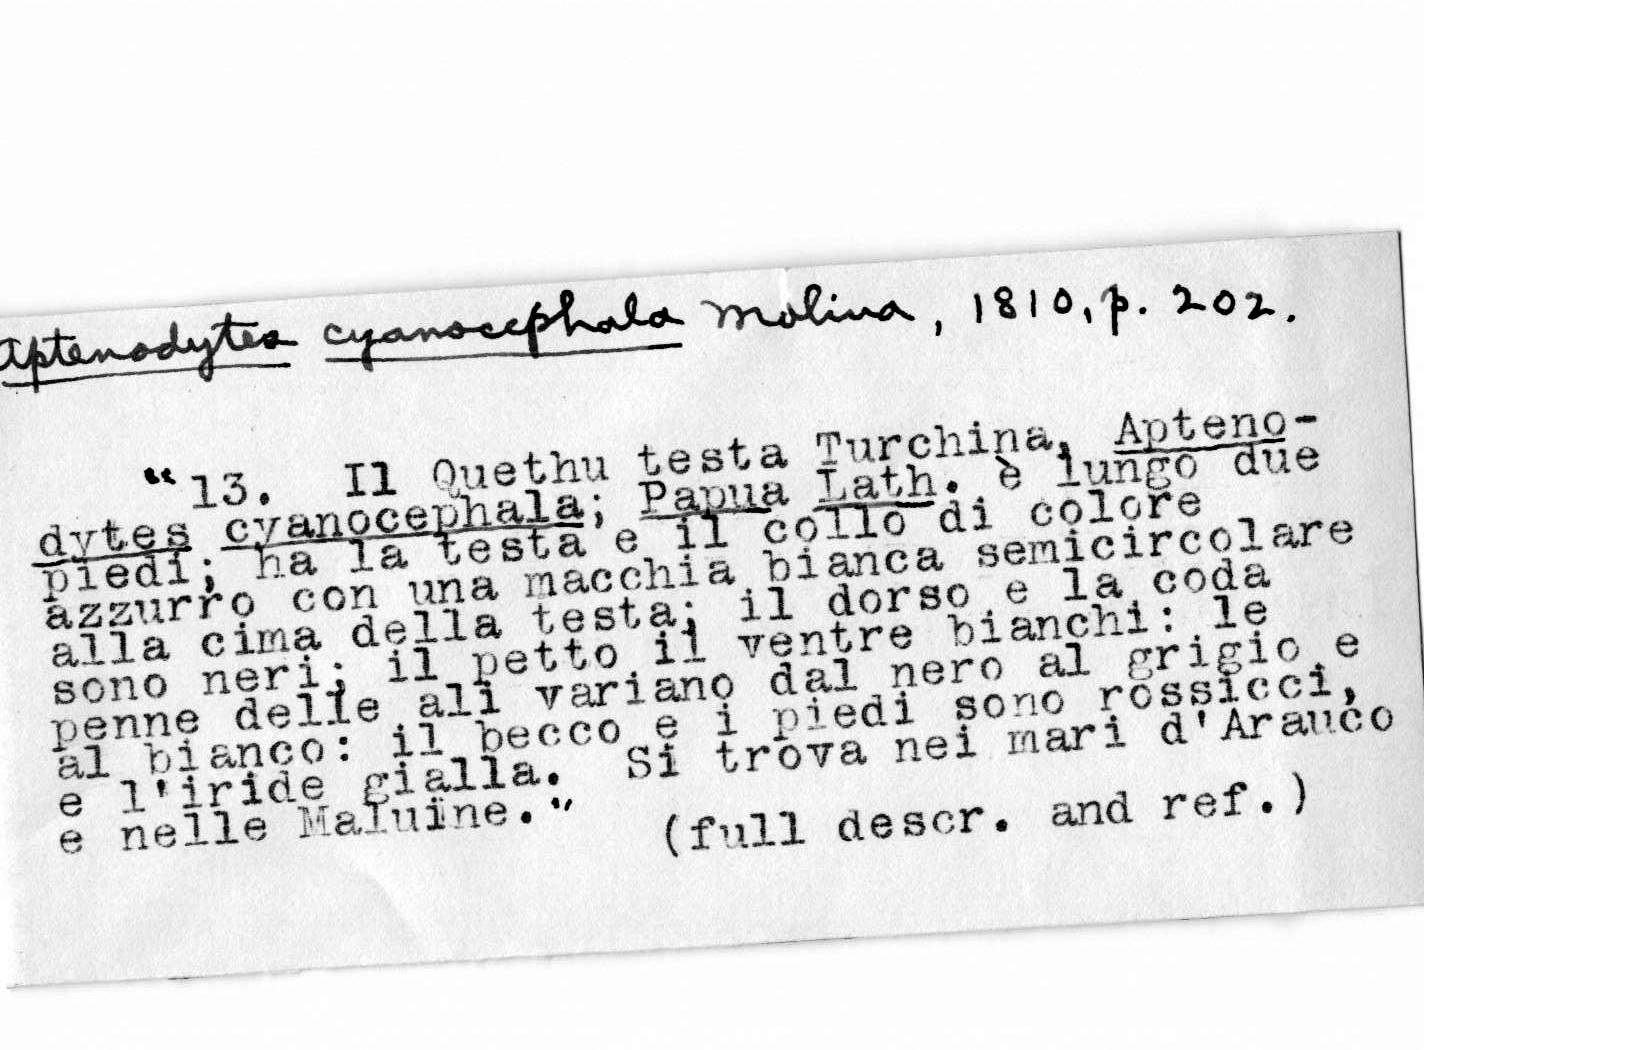 Aptenodytes cyanocephala Molina, 1810, p. 202.
"13. Il Quethu testa Turchina, Apteno-
dytes cyanocephala; Papua Lath. è lungo due
piedi; ha la testa e il collo di colore
azzurro con una macchia bianca semicircolare
alla cima della testa; il dorso e la coda
sono neri; il petto il ventre bianchi: le
penne delle ali variano dal nero al grigio e
al bianco: il becco e i piedi sono rossicci,
e l'iride gialla. Si trova nei mari d'Arauco
e nelle Maluine."
(full descr. and ref.)